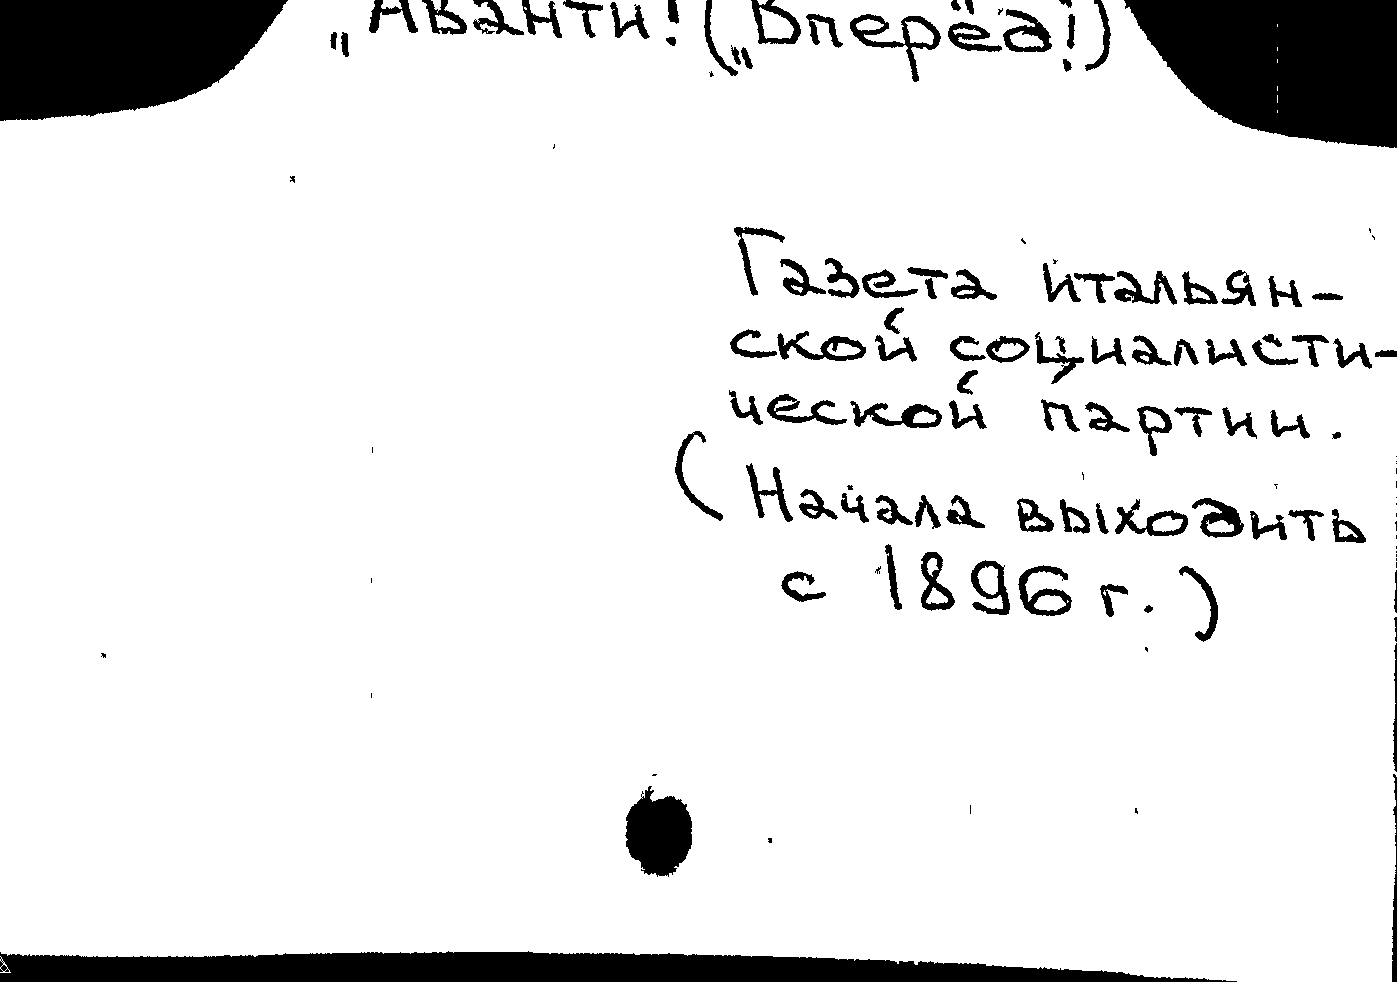 „Аванти! („Вперёд!)
Газета итальян-
ской социалисти-
ческой партии.
(Начала выходить
с 1896 г.)